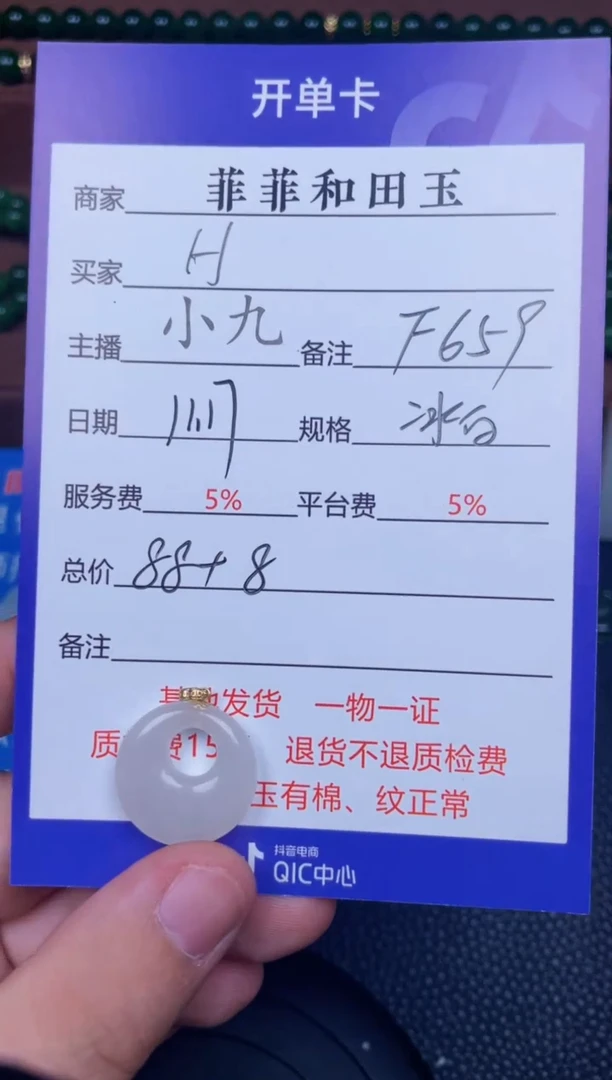 开单卡
商家 菲菲和田玉
买家 H
主播 小九 备注 F659
日期 规格 冰白
服务费 5% 平台费 5%
总价 88+8
备注
发货 一物一证
质 费15 退货不退质检费
玉有棉、纹正常
抖音电商
QIC中心